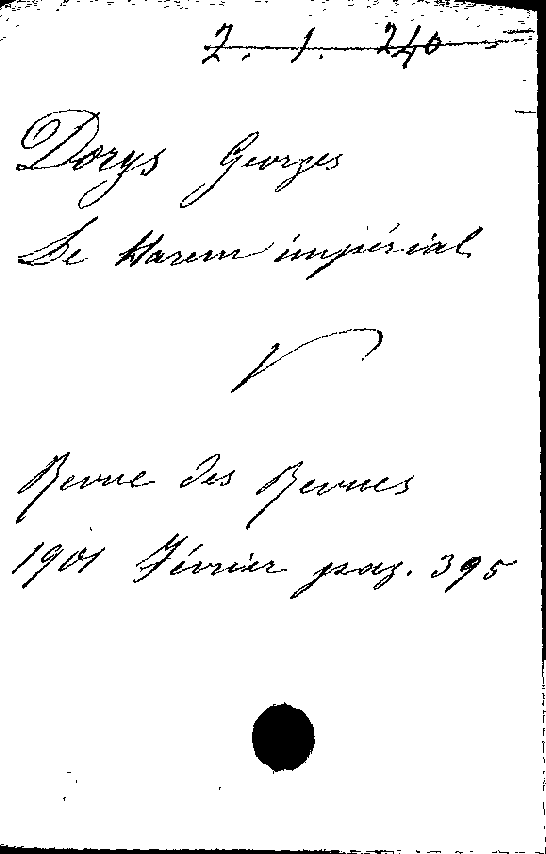 2. 1. 240
Dorys Georges
Le Harem impérial
Revue des Revues
1901 Février pag. 395